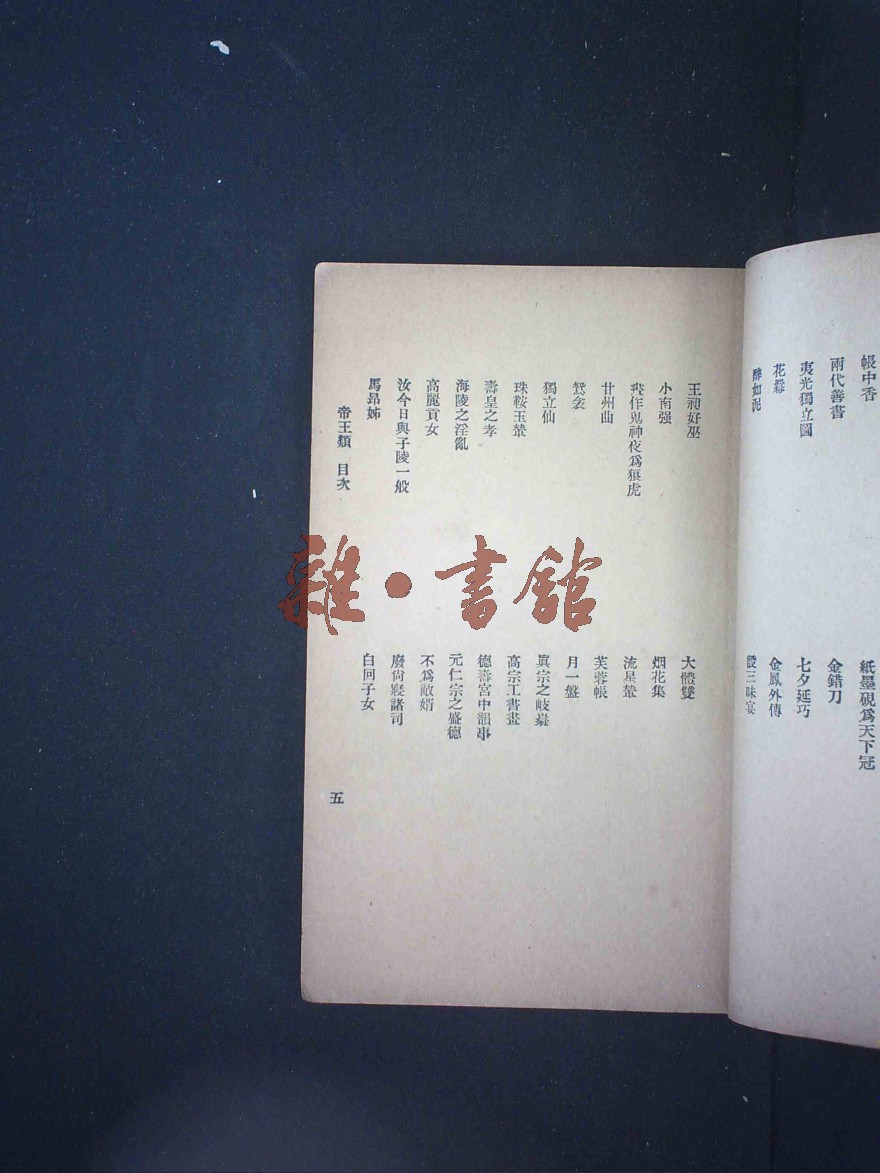 帳中香
兩代善書
夷光獨立圖
花蠟
醉如泥
紙墨硯爲天下冠
金錯刀
七夕延巧
金鳳外傳
設三昧宴
王昶好巫
小南强
晝作鬼神夜爲狼虎
甘州曲
鴛衾
獨立仙
珠鞍玉輦
壽皇之孝
海陵之淫亂
高麗貢女
汝今日與子陵一般
馬昂姊
大體雙
烟花集
流星輦
芙蓉帳
月一盤
眞宗之岐嶷
高宗工書畫
德壽宮中韻事
元仁宗之盛德
不爲敵婿
廢尙寢諸司
白回子女
帝王類 目次
五
雜·書館